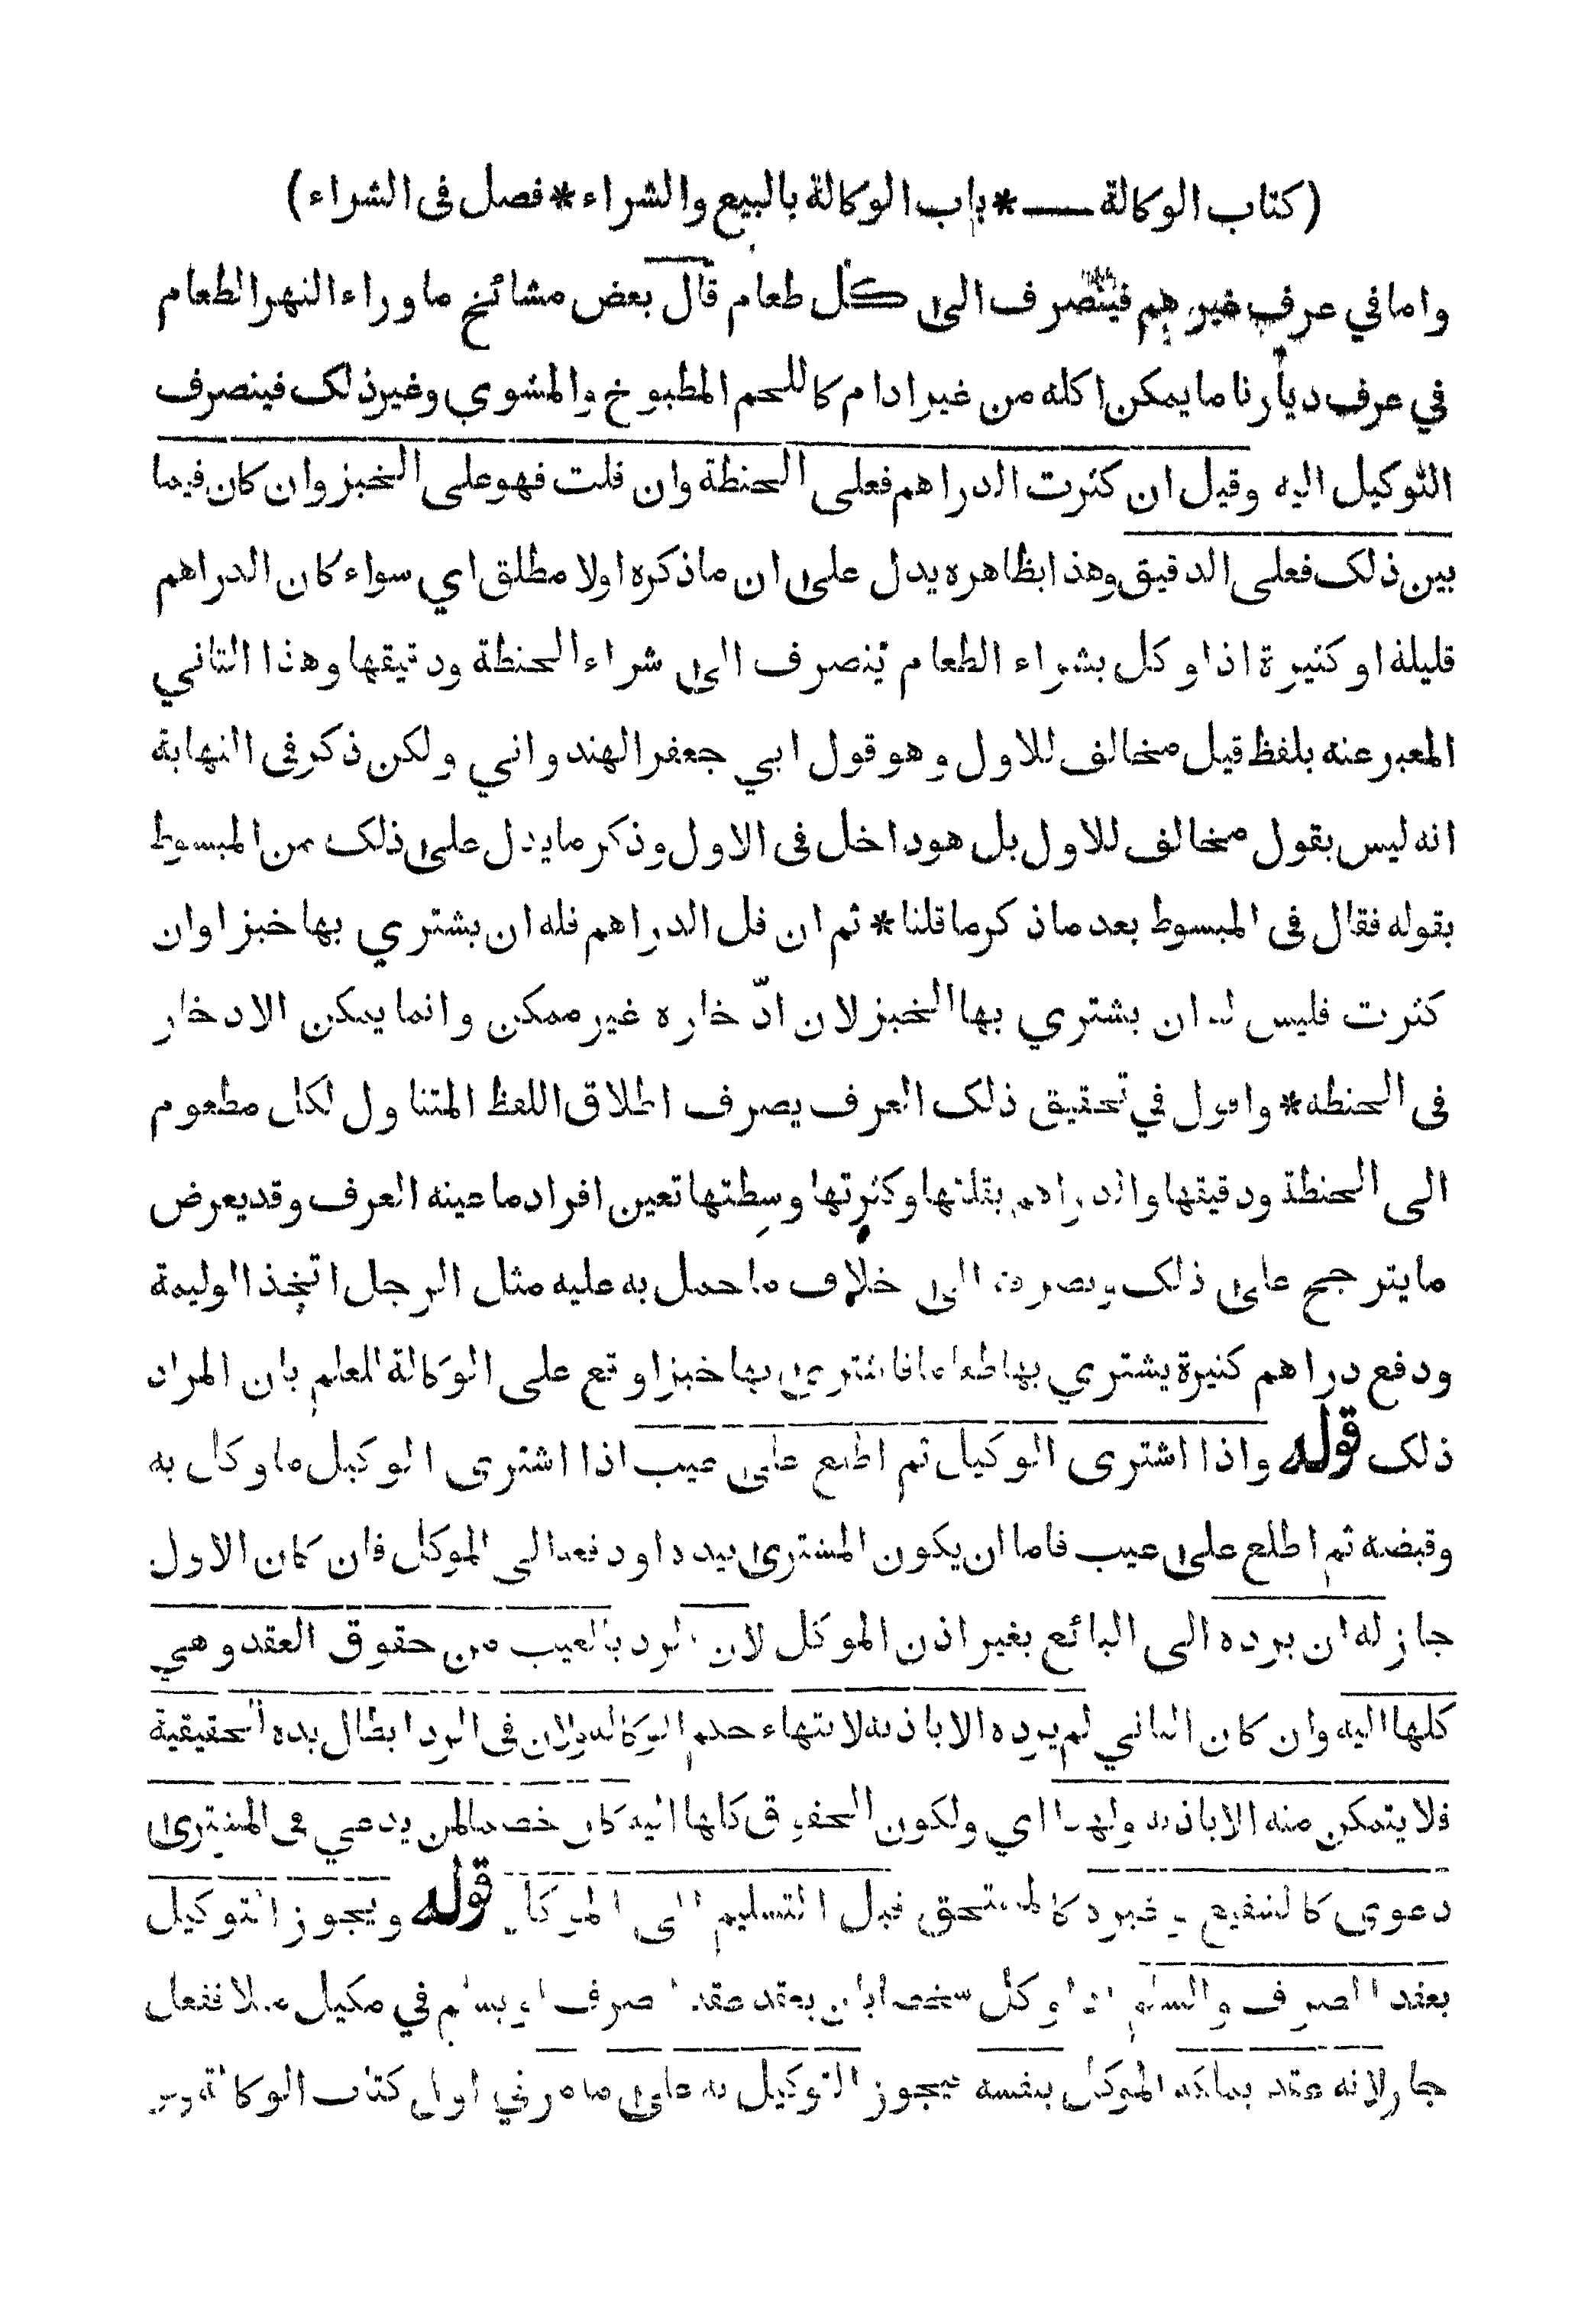 (كتاب الوكالة — * باب الوكالة بالبيع والشراء * فصل فى الشراء)
واما في عرف غيرهم فينصرف الى كل طعام قال بعض مشائخ ما وراء النهر الطعام
في عرف ديارنا ما يمكن اكله من غير ادام كاللحم المطبوخ والمشوي وغير ذلك فينصرف
التوكيل اليه وقيل ان كثرت الدراهم فعلى الحنطة وان قلت فهو على الخبز وان كان فيما
بين ذلك فعلى الدقيق وهذا بظاهره يدل على ان ماذكره اولا مطلق اي سواء كان الدراهم
قليلة او كثيرة اذا وكل بشراء الطعام ينصرف الى شراء الحنطة ودقيقها وهذا الثاني
المعبر عنه بلفظ قيل مخالف للاول وهو قول ابي جعفر الهندواني ولكن ذكر فى النهاية
انه ليس بقول مخالف للاول بل هو داخل فى الاول وذكر ما يدل على ذلك من المبسوط
بقوله فقال فى المبسوط بعد ماذكر ما قلنا * ثم ان قل الدراهم فله ان يشتري بها خبزا وان
كثرت فليس له ان يشتري بها الخبز لان ادّخاره غير ممكن وانما يمكن الادخار
فى الحنطه * واقول في تحقيق ذلك العرف يصرف اطلاق اللفظ المتناول لكل مطعوم
الى الحنطة ودقيقها والدراهم بقلتها وكثرتها وسطتها تعين افراد ما عينه العرف وقد يعرض
ما يترجح على ذلك ويصرفه الى خلاف ما حمل به عليه مثل الرجل اتخذ الوليمة
ودفع دراهم كثيرة يشتري بها طعاما فاشترى بها خبزا وقع على الوكالة للعلم بان المراد
ذلك قوله واذا اشترى الوكيل ثم اطلع على عيب اذا اشترى الوكيل ما وكل به
وقبضه ثم اطلع على عيب فاما ان يكون المشترى بيده او دفعه الى الموكل فان كان الاول
جاز له ان يرده الى البائع بغير اذن الموكل لان الرد بالعيب من حقوق العقد وهي
كلها اليه وان كان الثاني لم يرده الا باذنه لانتهاء حكم الوكالة ولان فى الرد ابطال يده الحقيقية
فلا يتمكن منه الا باذنه ولهذا اي ولكون الحقوق كلها اليه كان خصما لمن يدعي فى المشترى
دعوى كالشفيع وغيره كالمستحق قبل التسليم الى الموكل قوله ويجوز التوكيل
بعقد الصرف والسلم اذا وكل شخصا بان يعقد عقد الصرف او يسلم في مكيل مثلا ففعل
جاز لانه عقد يملكه الموكل بنفسه فيجوز التوكيل به على ما مر في اول كتاب الوكالة